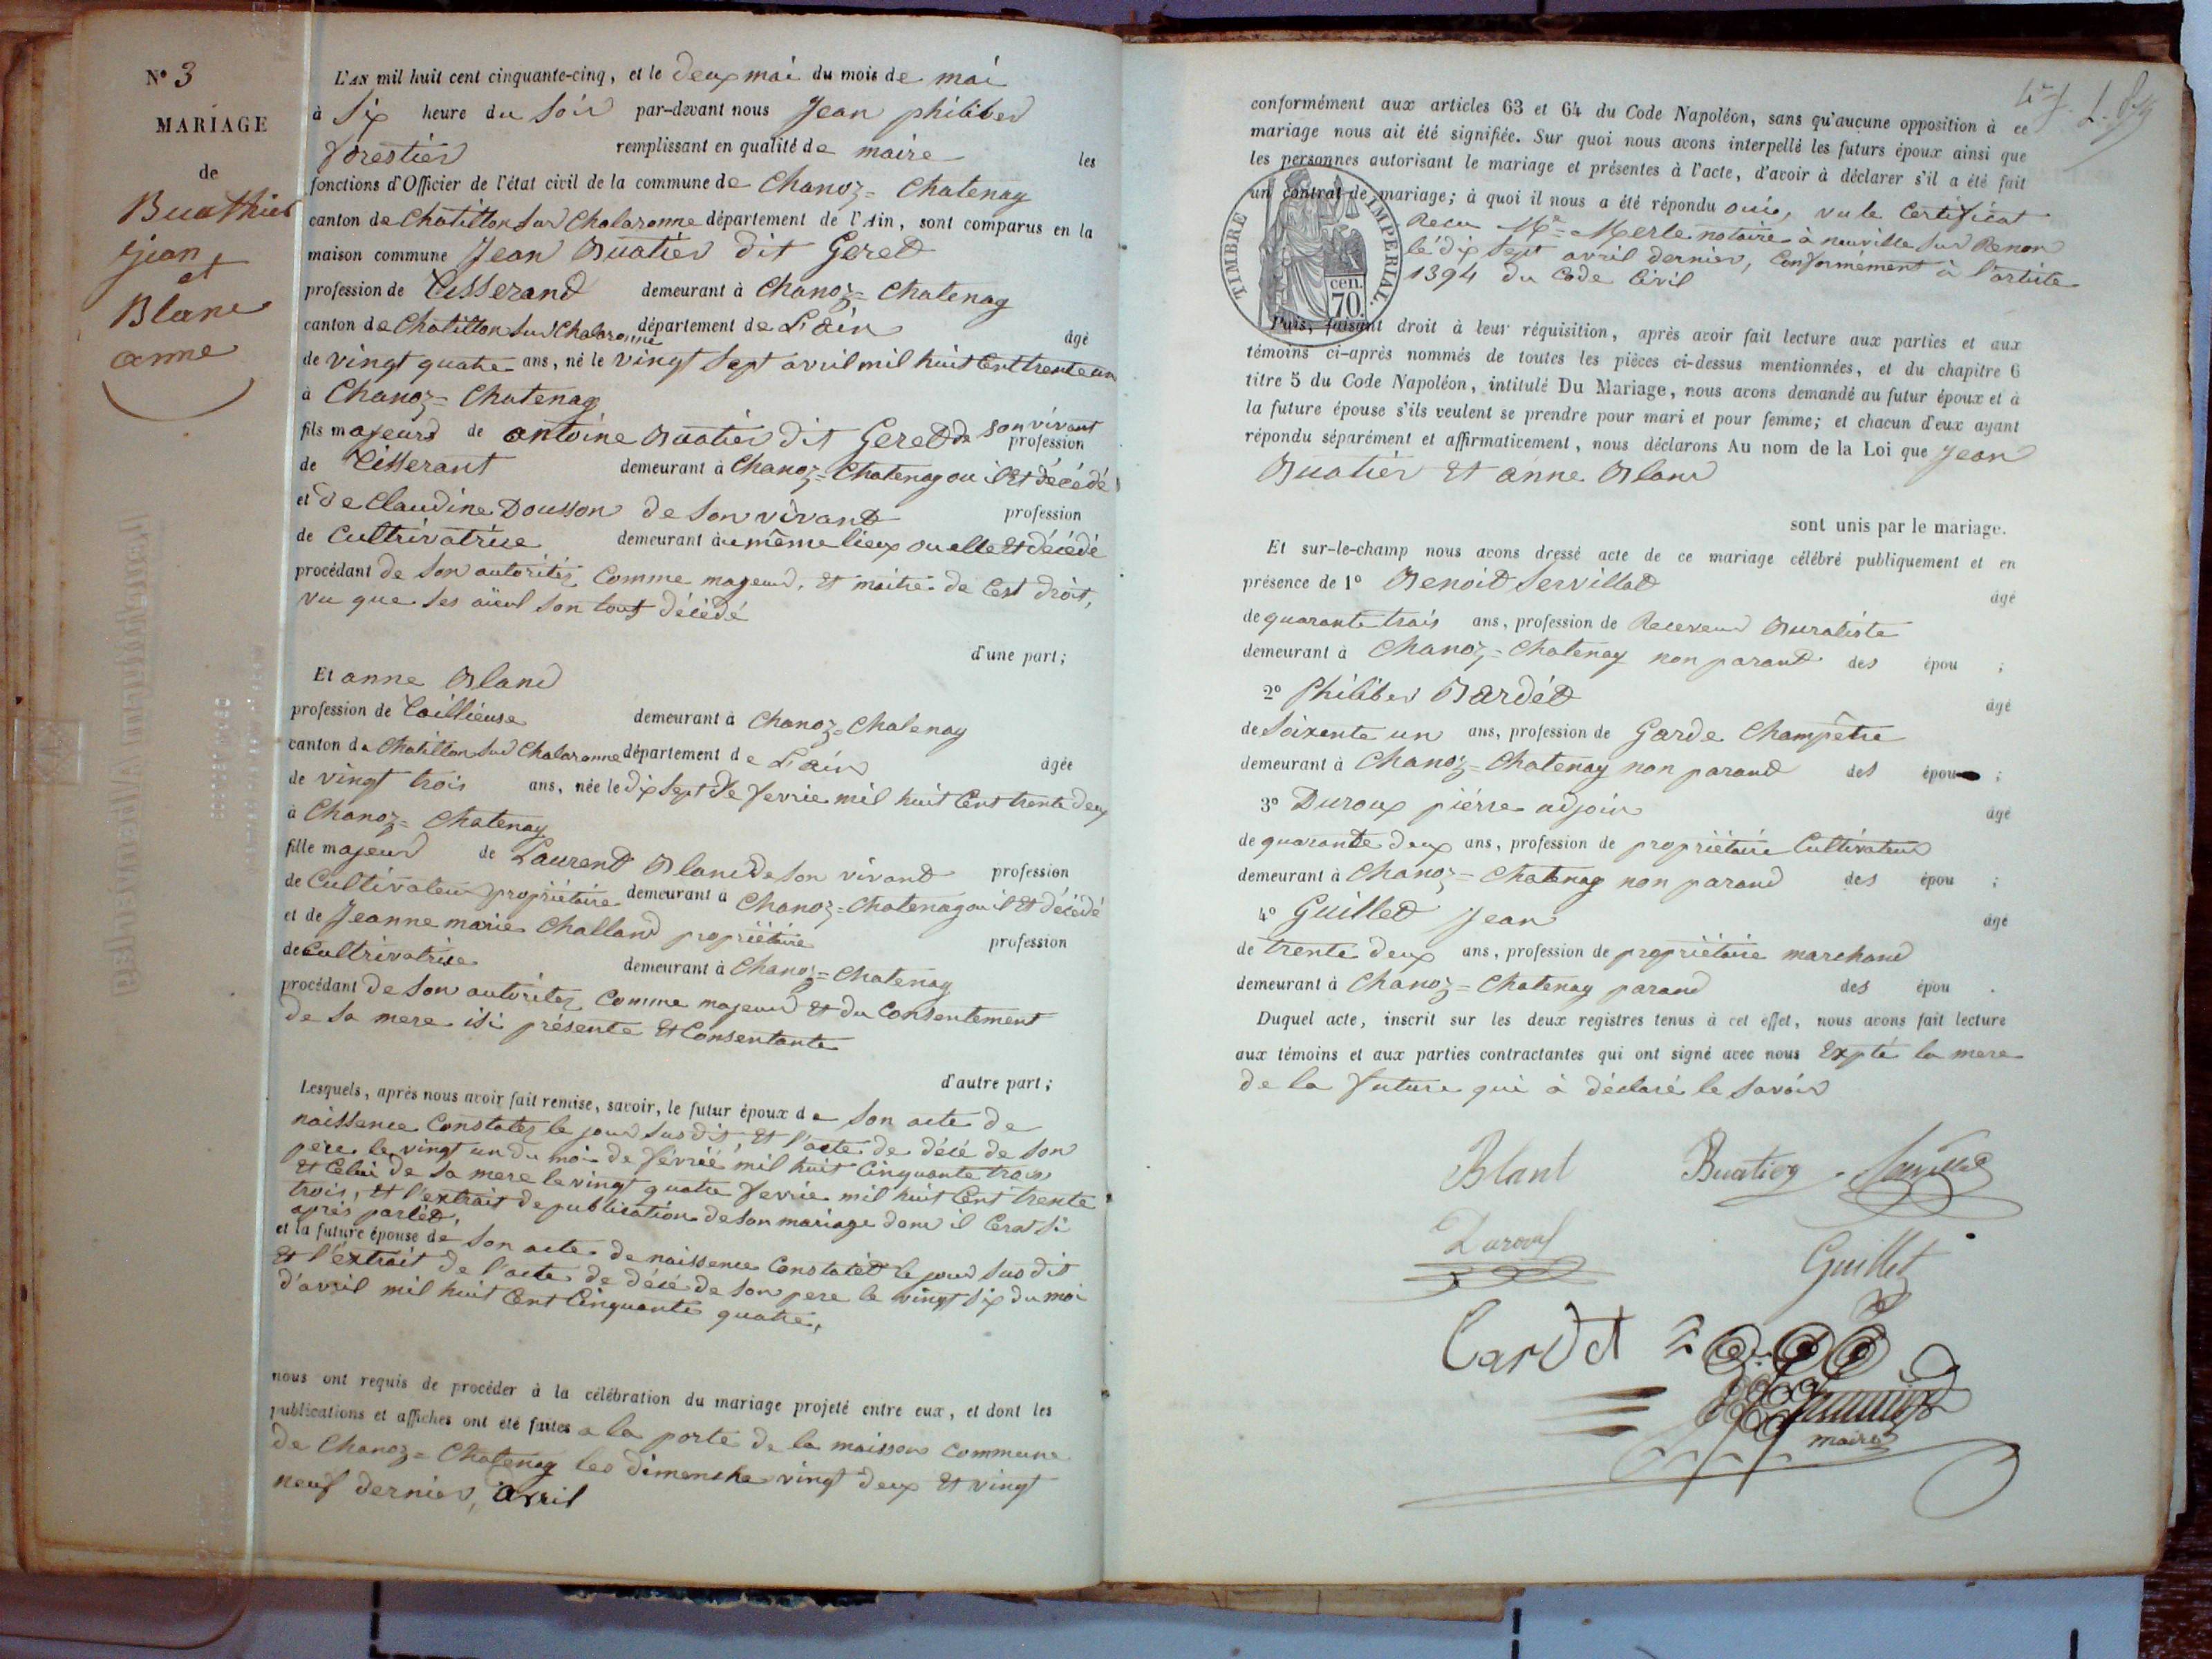 N° 3
MARIAGE
de
Buathier
jean
et
Blanc
anne
L'AN mil huit cent cinquante-cinq, et le deux mai du mois de mai
à six heure du soir par-devant nous Jean philiber
forestier remplissant en qualité de maire les
fonctions d'Officier de l'état civil de la commune de Chanoz=Chatenay
canton de Chatillon sur Chalaronne département de l'Ain, sont comparus en la
maison commune Jean Buatier dit Geret
profession de Tisserand demeurant à Chanoz=Chatenay
canton de Chatillon sur Chalaronne département de L'ain âgé
de vingt quatre ans, né le vingt sept avril mil huit Cent trente un
à Chanoz=Chatenay
fils majeur de antoine Buatier dit Geret de son vivant profession
de Tisserant demeurant à Chanoz=Chatenay ou il Et décédé
et de Claudine Dousson de son vivant profession
de Cultrivatrise demeurant au même lieux ou elle Et décédé
procédant de son autoritez Comme majeur, Et maitre de Cest droit,
vu que ses aïeul son tout décédé
d'une part;
Et anne Blanc
profession de Taillieuse demeurant à Chanoz=Chatenay
canton de Chatillon sur Chalaronne département de L'ain âgée
de vingt trois ans, née le dix sept de fevrie mil huit Cent trente deux
à Chanoz=Chatenay
fille majeur de Laurent Blanc de son vivant profession
de Cultivateur propriétaire demeurant à Chanoz=Chatenay ou il Et décédé
et de Jeanne marie Challand propriétaire profession
de Cultrivatrise demeurant à Chanoz=Chatenay
procédant de son autoritez Comme majeur Et du Consentement
de sa mere isi présente Et Consentante
d'autre part;
Lesquels, après nous avoir fait remise, savoir, le futur époux de son acte de
naissence Constatez le jour sus dit, Et l'acte de décé de son
pere le vingt un du moi de févrié mil huit Cinquante trois
Et Celui de sa mere le vingt quatre fevrie mil huit Cent trente
trois, Et l'extrait de publication de son mariage dont il Cerat si
après parlét,
et la future épouse de son acte de naissence Constatét le jour sus dit
Et l'extrait de l'acte de décé de son pere le vingt six du moi
d'avril mil huit Cent Cinquante quatre,
nous ont requis de procéder à la célébration du mariage projeté entre eux, et dont les
publications et affiches ont été faites a la porte de la maison commune
de Chanoz=Chatenay les dimenche vingt deux Et vingt
neuf dernier, avril
conformément aux articles 63 et 64 du Code Napoléon, sans qu'aucune opposition à ce
mariage nous ait été signifiée. Sur quoi nous avons interpellé les futurs époux ainsi que
les personnes autorisant le mariage et présentes à l'acte, d'avoir à déclarer s'il a été fait
un contrat de mariage; à quoi il nous a été répondu oui, vu le Certificat
Recu Me Merle notaire à neuville sur Renon
le dix sept avril dernier, Conformément à l'artite
1394 du Code Civil
TIMBRE IMPERIAL.
cen.
70.
Puis, faisant droit à leur réquisition, après avoir fait lecture aux parties et aux
témoins ci-après nommés de toutes les pièces ci-dessus mentionnées, et du chapitre 6
titre 5 du Code Napoléon, intitulé Du Mariage, nous avons demandé au futur époux et à
la future épouse s'ils veulent se prendre pour mari et pour femme; et chacun d'eux ayant
répondu séparément et affirmativement, nous déclarons Au nom de la Loi que Jean
Buatier Et anne Blanc
sont unis par le mariage.
Et sur-le-champ nous avons dressé acte de ce mariage célébré publiquement et en
présence de 1° Benoit Servillat âgé
de quarante trois ans, profession de Receveur Buraliste
demeurant à Chanoz=Chatenay non parant des épou ;
2° Philiber Bardét âgé
de Soixente un ans, profession de Garde Champêtre
demeurant à Chanoz=Chatenay non parant des épou ;
3° Duroux piérre adjoin âgé
de quarante deux ans, profession de propriétaire Cultivateur
demeurant à Chanoz=Chatenay non parant des épou ;
4° Guillet Jean âgé
de trente deux ans, profession de propriétaire marchand
demeurant à Chanoz=Chatenay parant des épou .
Duquel acte, inscrit sur les deux registres tenus à cet effet, nous avons fait lecture
aux témoins et aux parties contractantes qui ont signé avec nous Expté la mere
de la future qui à déclaré le savoir
Blanl Buatier Servillat
Duroux Guillet
Cardet
maire